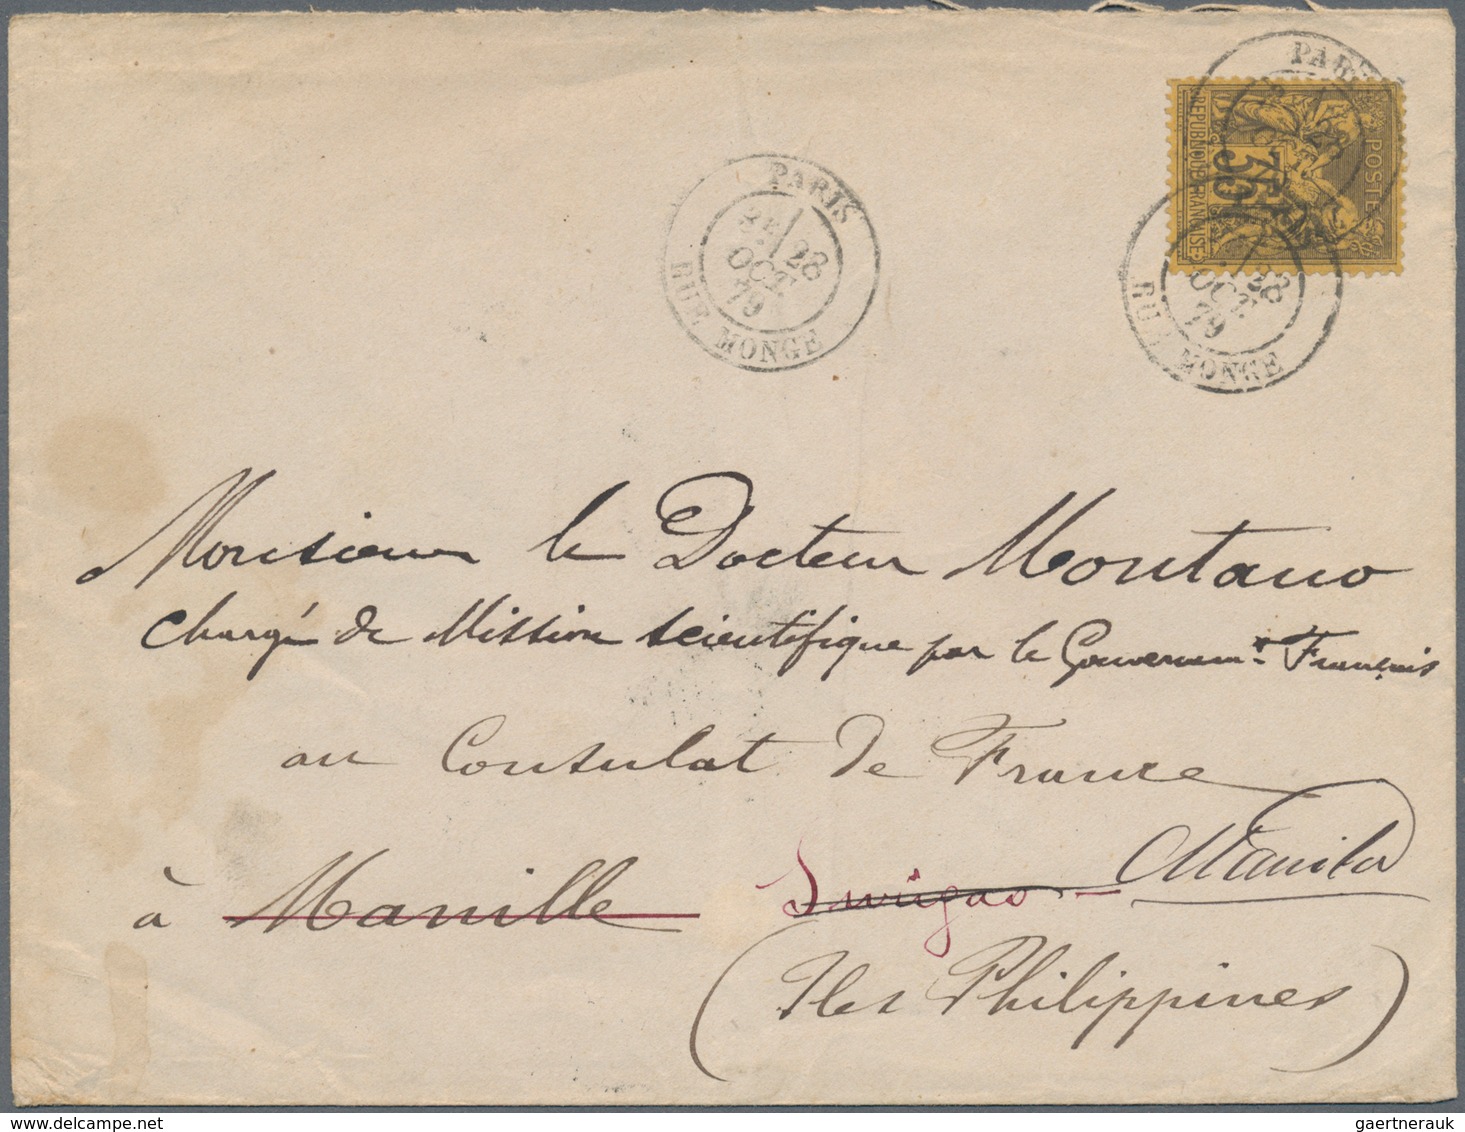 PARIS
28
OCT.
79
RUE MONGE
PARIS
28
OCT.
79
RUE MONGE
POSTES
35
REPUBLIQUE FRANÇAISE
Monsieur le Docteur Montano
chargé de Mission scientifique par le Gouvernemt Français
au Consulat de France
à Manille Surigao - Manila
(Iles Philippines)
gaertnerauk